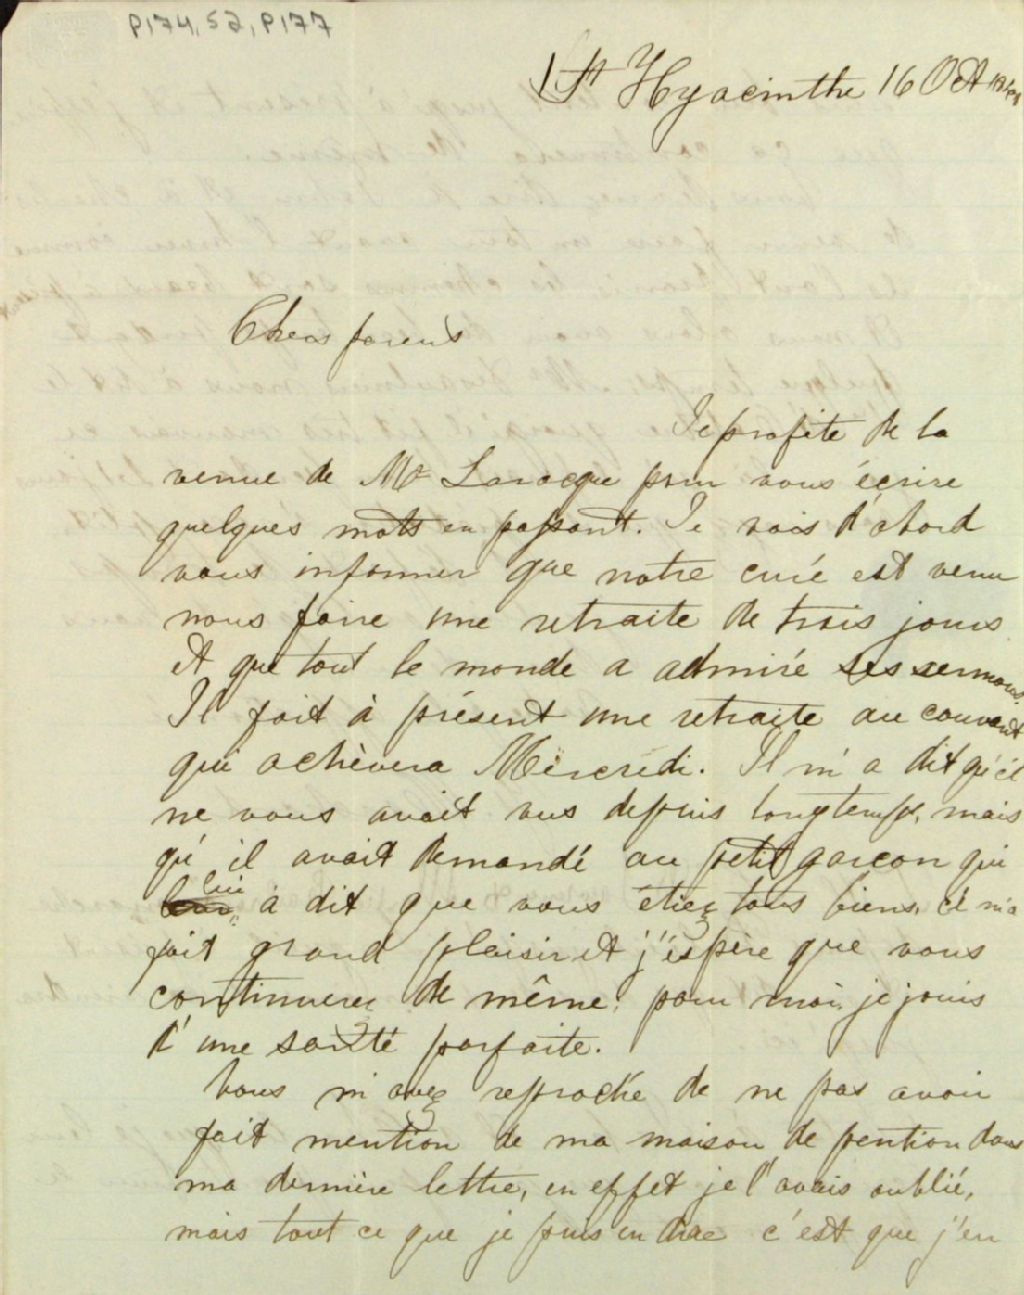 P174, S2, P177
St Hyacinthe 16 Oct
Chers parents
Je profite de la
venue de Mr Larocque pour vous écrire
quelques mots en passant. Je vais d'abord
vous informer que notre curé est venu
nous faire une retraite de trois jours
et que tout le monde a admiré ses sermons.
Il fait à présent une retraite au couvent
qui achèvera Mercredi. Il m'a dit qu'il
ne vous avait vus depuis longtemps, mais
qu'il avait demandé au petit garçon qui
lui à dit que vous étiez tous biens, cé m'a
fait grand plaisir et j'éspère que vous
continuerez de même. pour moi, je jouis
d'une santé parfaite.
Vous m'avez reproché de ne pas avoir
fait mention de ma maison de pention dans
ma dernière lettre, en effet je l'avais oublié,
mais tout ce que je puis en dire c'est que j'en